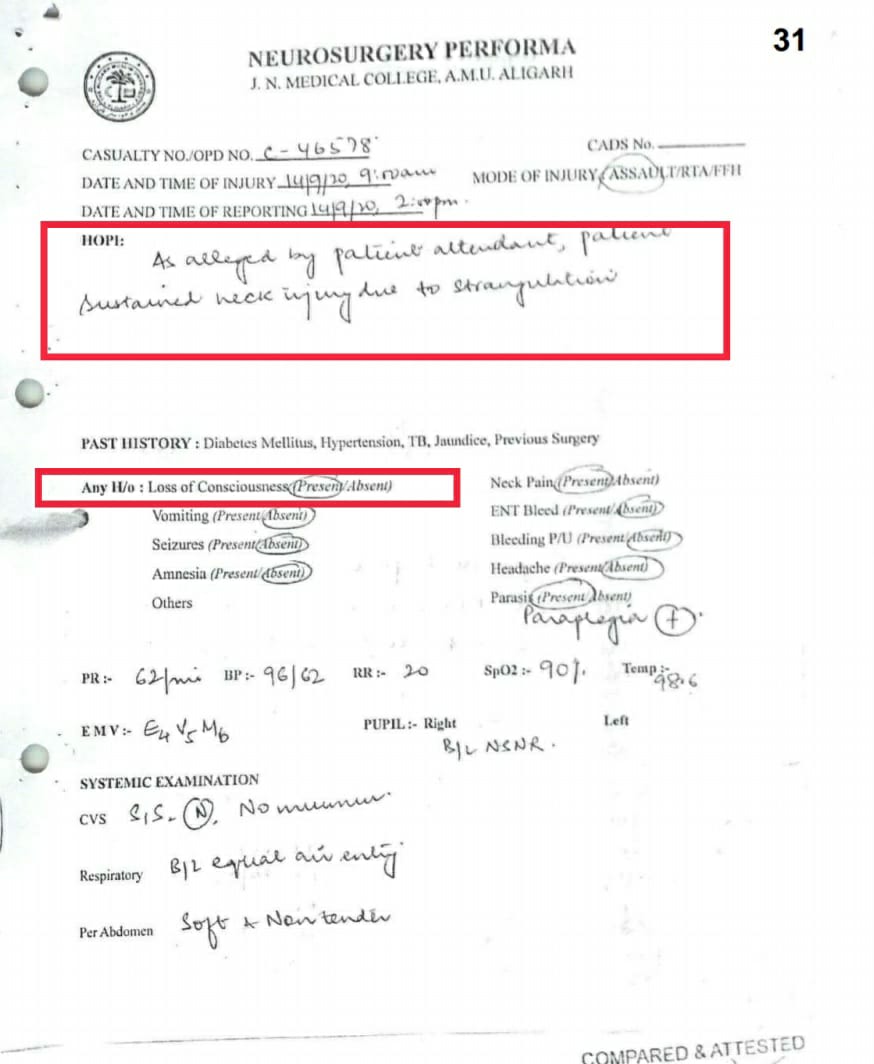 31
NEUROSURGERY PERFORMA
J. N. MEDICAL COLLEGE, A.M.U. ALIGARH
CADS No.
CASUALTY NO./OPD NO. C-46578
DATE AND TIME OF INJURY 14/9/20, 9:00am MODE OF INJURY (ASSAULT/RTA/FFH
DATE AND TIME OF REPORTING 14/9/20, 2:00pm.
HOPI:
As alleged by patient attendant, patient
sustained neck injury due to strangulation
PAST HISTORY : Diabetes Mellitus, Hypertension, TB, Jaundice, Previous Surgery
Any H/o : Loss of Consciousness (Present/Absent) Neck Pain (Present/Absent)
Vomiting (Present/Absent) ENT Bleed (Present/Absent)
Seizures (Present/Absent) Bleeding P/U (Present/Absent)
Amnesia (Present/Absent) Headache (Present/Absent)
Others Parasis (Present/Absent)
Paraplegia +
PR :- 62/mi BP :- 96/62 RR :- 20 SpO2 :- 90% Temp :- 98.6
EMV:- E4 V5 M6 PUPIL :- Right Left
B/L NSNR.
SYSTEMIC EXAMINATION
CVS S1S2 N, No murmur
Respiratory B/L equal air entry
Per Abdomen Soft & Non tender
COMPARED & ATTESTED